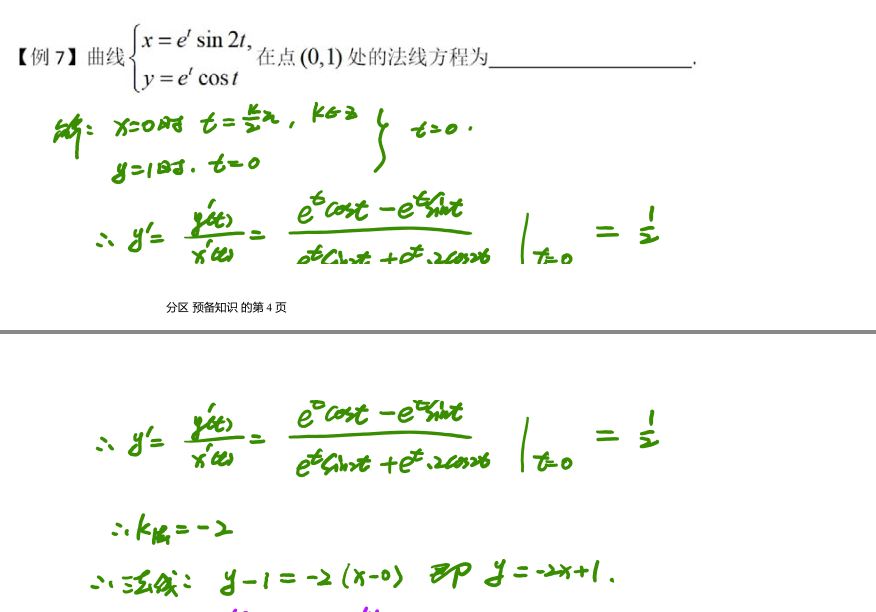 【例 7】曲线 { x = e^t sin 2t, y = e^t cos t 在点 (0,1) 处的法线方程为________.
解: x=0时 t = k/2 π, k∈z } t=0.
y=1时. t=0
∴ y' = y'(t)/x'(t) = (e^t cost - e^t sint)/(e^t sin2t + e^t·2cos2t) |t=0 = 1/2
分区 预备知识 的第 4 页
∴ y' = y'(t)/x'(t) = (e^t cost - e^t sint)/(e^t sin2t + e^t·2cos2t) |t=0 = 1/2
∴ k法 = -2
∴ 法线: y-1 = -2(x-0) 即 y = -2x+1.